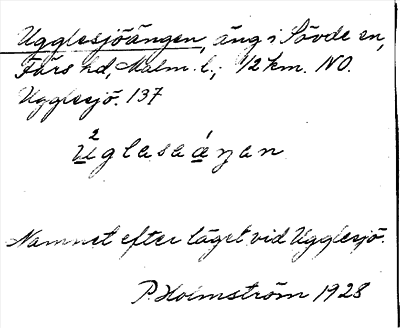 Ugglesjöängen, äng i Sövde sn,
Färs hd, Malm. l., 1/2 km. NO.
Ugglesjö. 137
2
Uglasaáŋan
Namnet efter läget vid Ugglesjö.
P. Holmström 1928